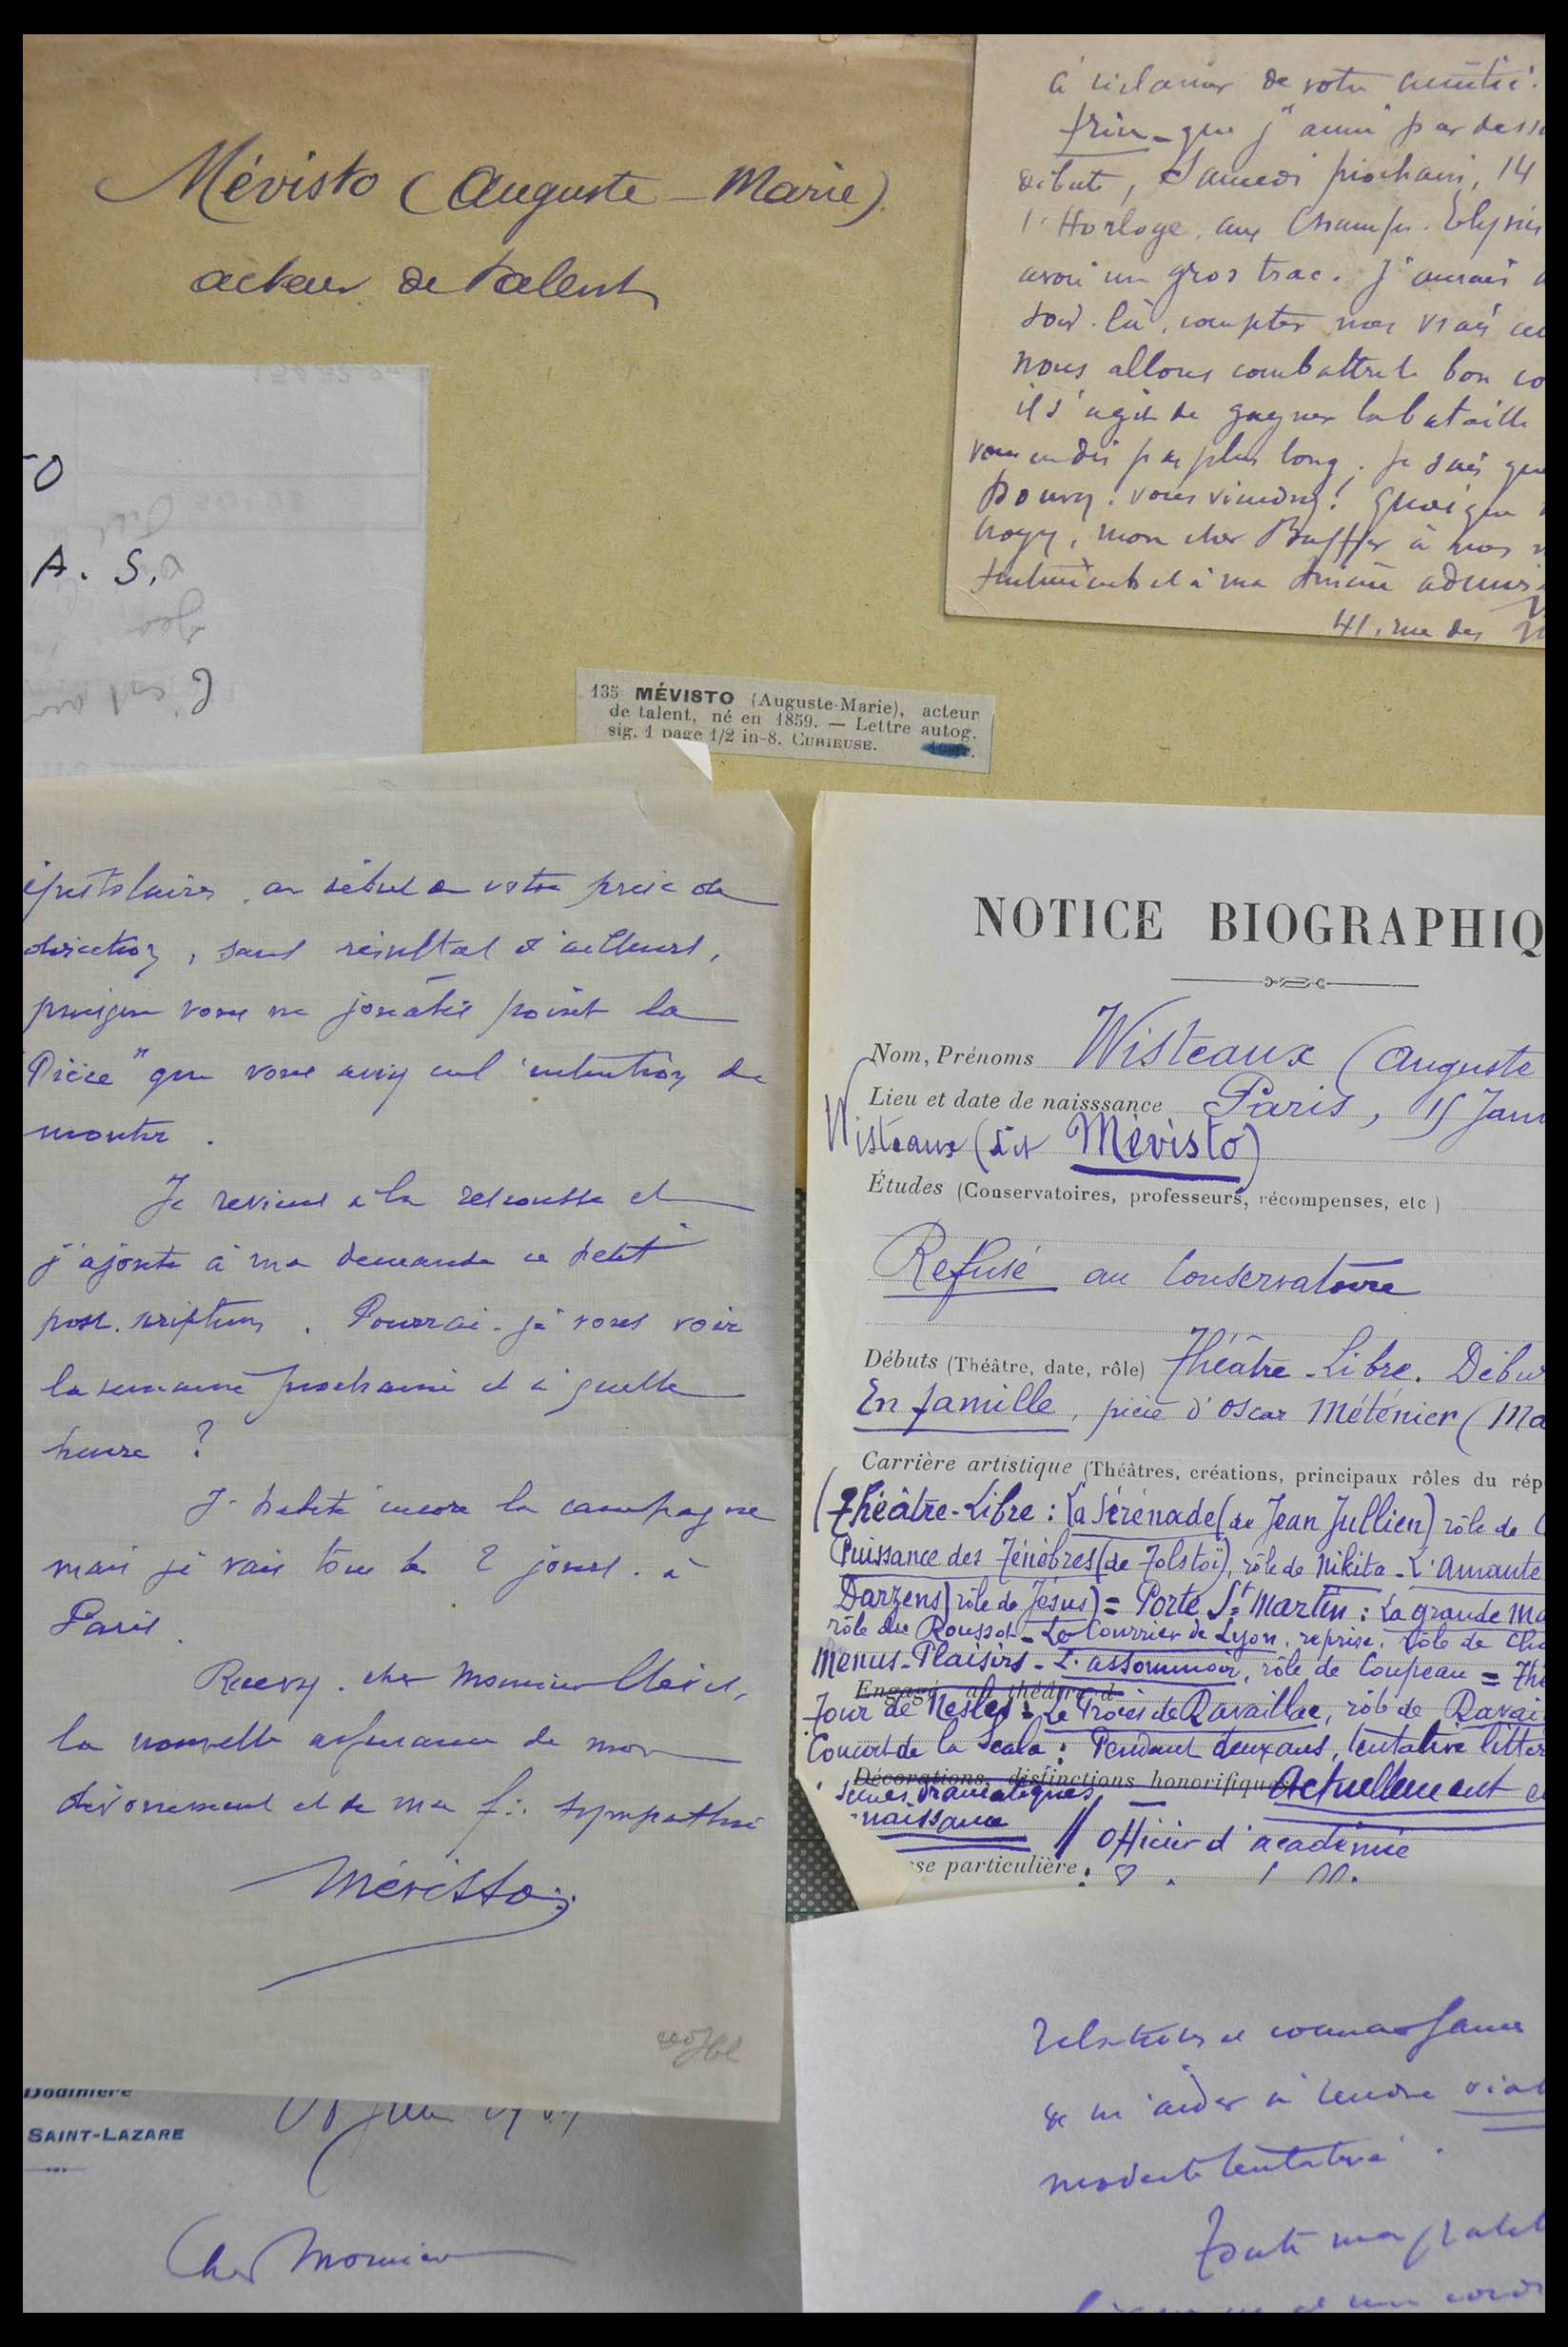 Mévisto (Auguste-Marie)
acteur de talent
à réclamer de votre amitié.
que j'
début, Samedi prochain, 14
l'Horloge aux Champs-Elysées
avoir un gros trac. J'aurais
là, compter mes vrais
nous allons combattre le bon
il s'agit de gagner la bataille
pas plus long. Je sais que
vous viendrez! Quoique
mon cher Buffet à mes
et à ma sincère
41, rue des
O
A. S.
135 MÉVISTO (Auguste-Marie), acteur
de talent, né en 1859. — Lettre autog.
sig. 1 page 1/2 in-8. CURIEUSE.
épistolaires, au début de votre prise de
direction, sans résultat d'ailleurs,
puisque vous ne jouâtes point la
Pièce" que vous aviez eu l'intention de
monter.
Je reviens à la rescousse et
j'ajoute à ma demande ce petit
post-scriptum. Pourrai-je vous voir
la semaine prochaine et à quelle
heure ?
J'habite encore la campagne
mais je vais tous les 2 jours à
Paris.
Recevez, cher Monsieur
la nouvelle assurance de mon
dévouement et de ma sympathie
Mévisto
NOTICE BIOGRAPHIQ
Nom, Prénoms Wisteaux (Auguste
Lieu et date de naisssance Paris, 15 Janv
Wisteaux (dit Mévisto)
Études (Conservatoires, professeurs, récompenses, etc)
Refusé au Conservatoire
Débuts (Théâtre, date, rôle) Théâtre-Libre. Débu
En famille, pièce d'Oscar Méténier (Ma
Carrière artistique (Théâtres, créations, principaux rôles du rép
(Théâtre-Libre : La Sérénade (de Jean Jullien) rôle de
Puissance des Ténèbres (de Tolstoï), rôle de Nikita - L'Amante
Darzens) rôle de Jésus) = Porte St Martin : La grande Ma
rôle du Roussot - Le Courrier de Lyon, reprise, rôle de Cho
Menus-Plaisirs - L'assommoir, rôle de Coupeau = Thé
Engagé au théâtre d
Tour de Nesles : Le Procès de Ravaillac, rôle de Ravai
Concert de la Scala : Pendant deux ans, tentative littér
Décorations, distinctions honorifiques Actuellement
scènes dramatiques
naissance // Officier d'académie
sse particulière
SAINT-LAZARE
Cher Monsieur
Relations et connaissances
de m'aider à rendre
modeste tentative.
Toute ma